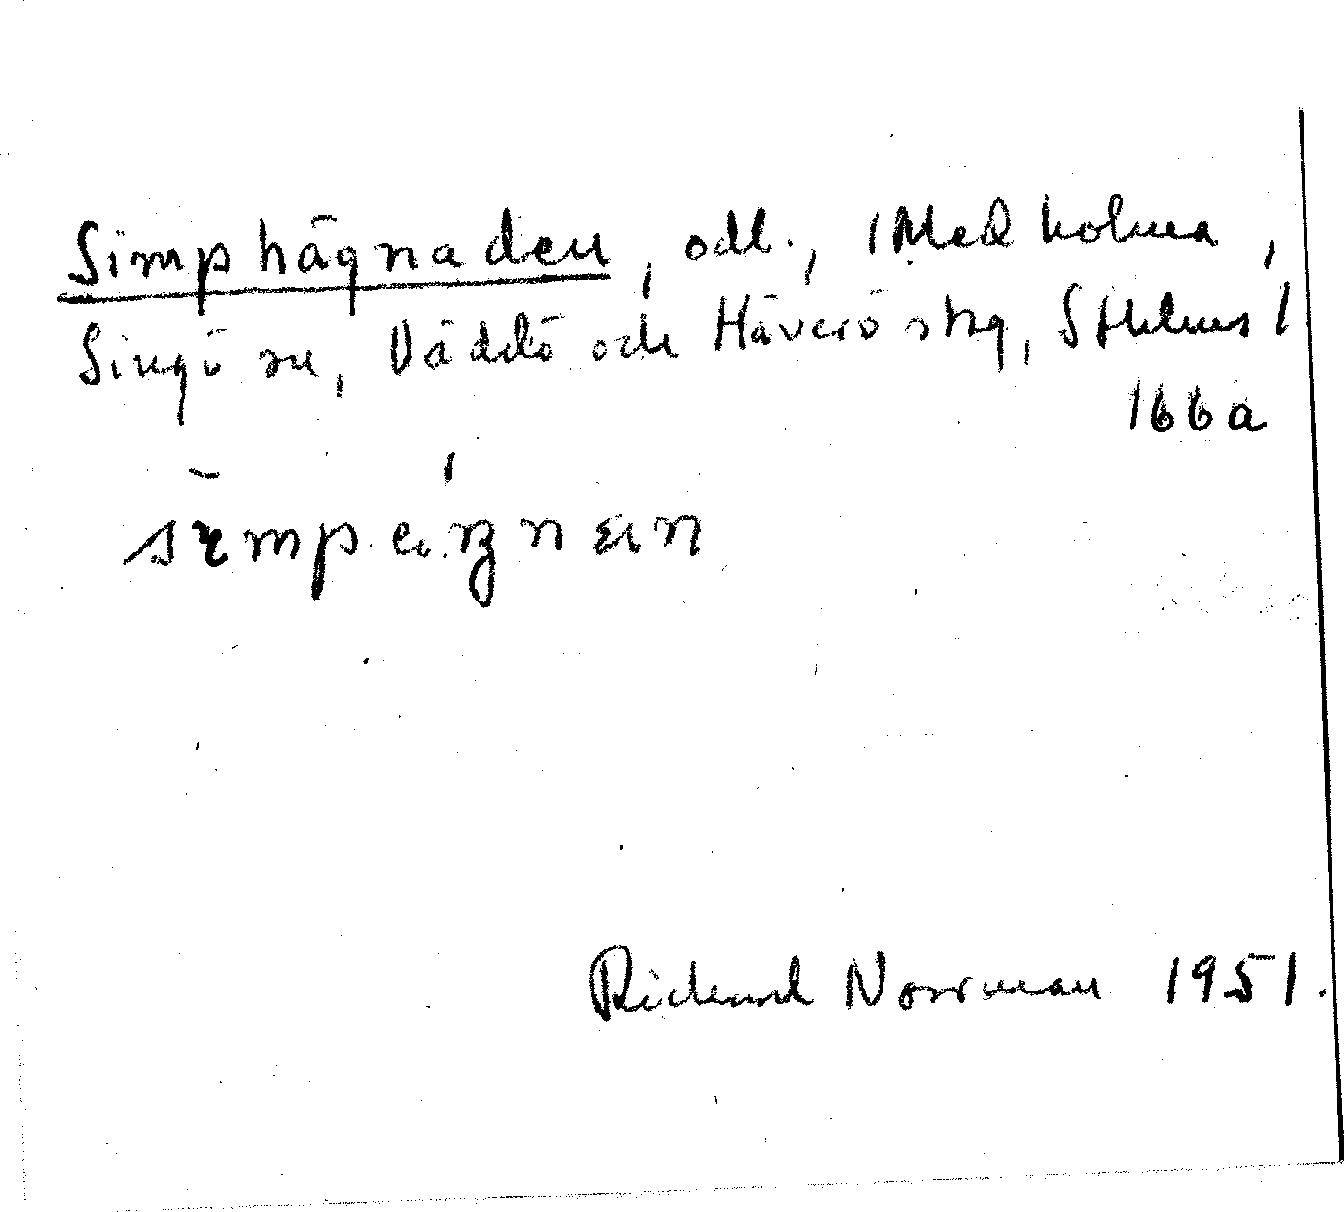 Simphägnaden, odl., 1 Medholma,
Singö sn, Väddö och Häverö skg, Sthlms l
166a
Richard Norrman 1951.